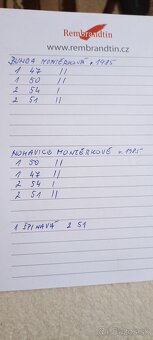 Rembrandtin
www.rembrandtin.cz
BUNDA MONTÉRKOVÁ r. 1985
1 47 II
1 50 II
2 54 I
2 51 II
NOHAVICE MONTÉRKOVÉ r. 1985
1 50 II
1 47 II
2 54 I
2 51 II
1 ŠPINAVÁ 2 51